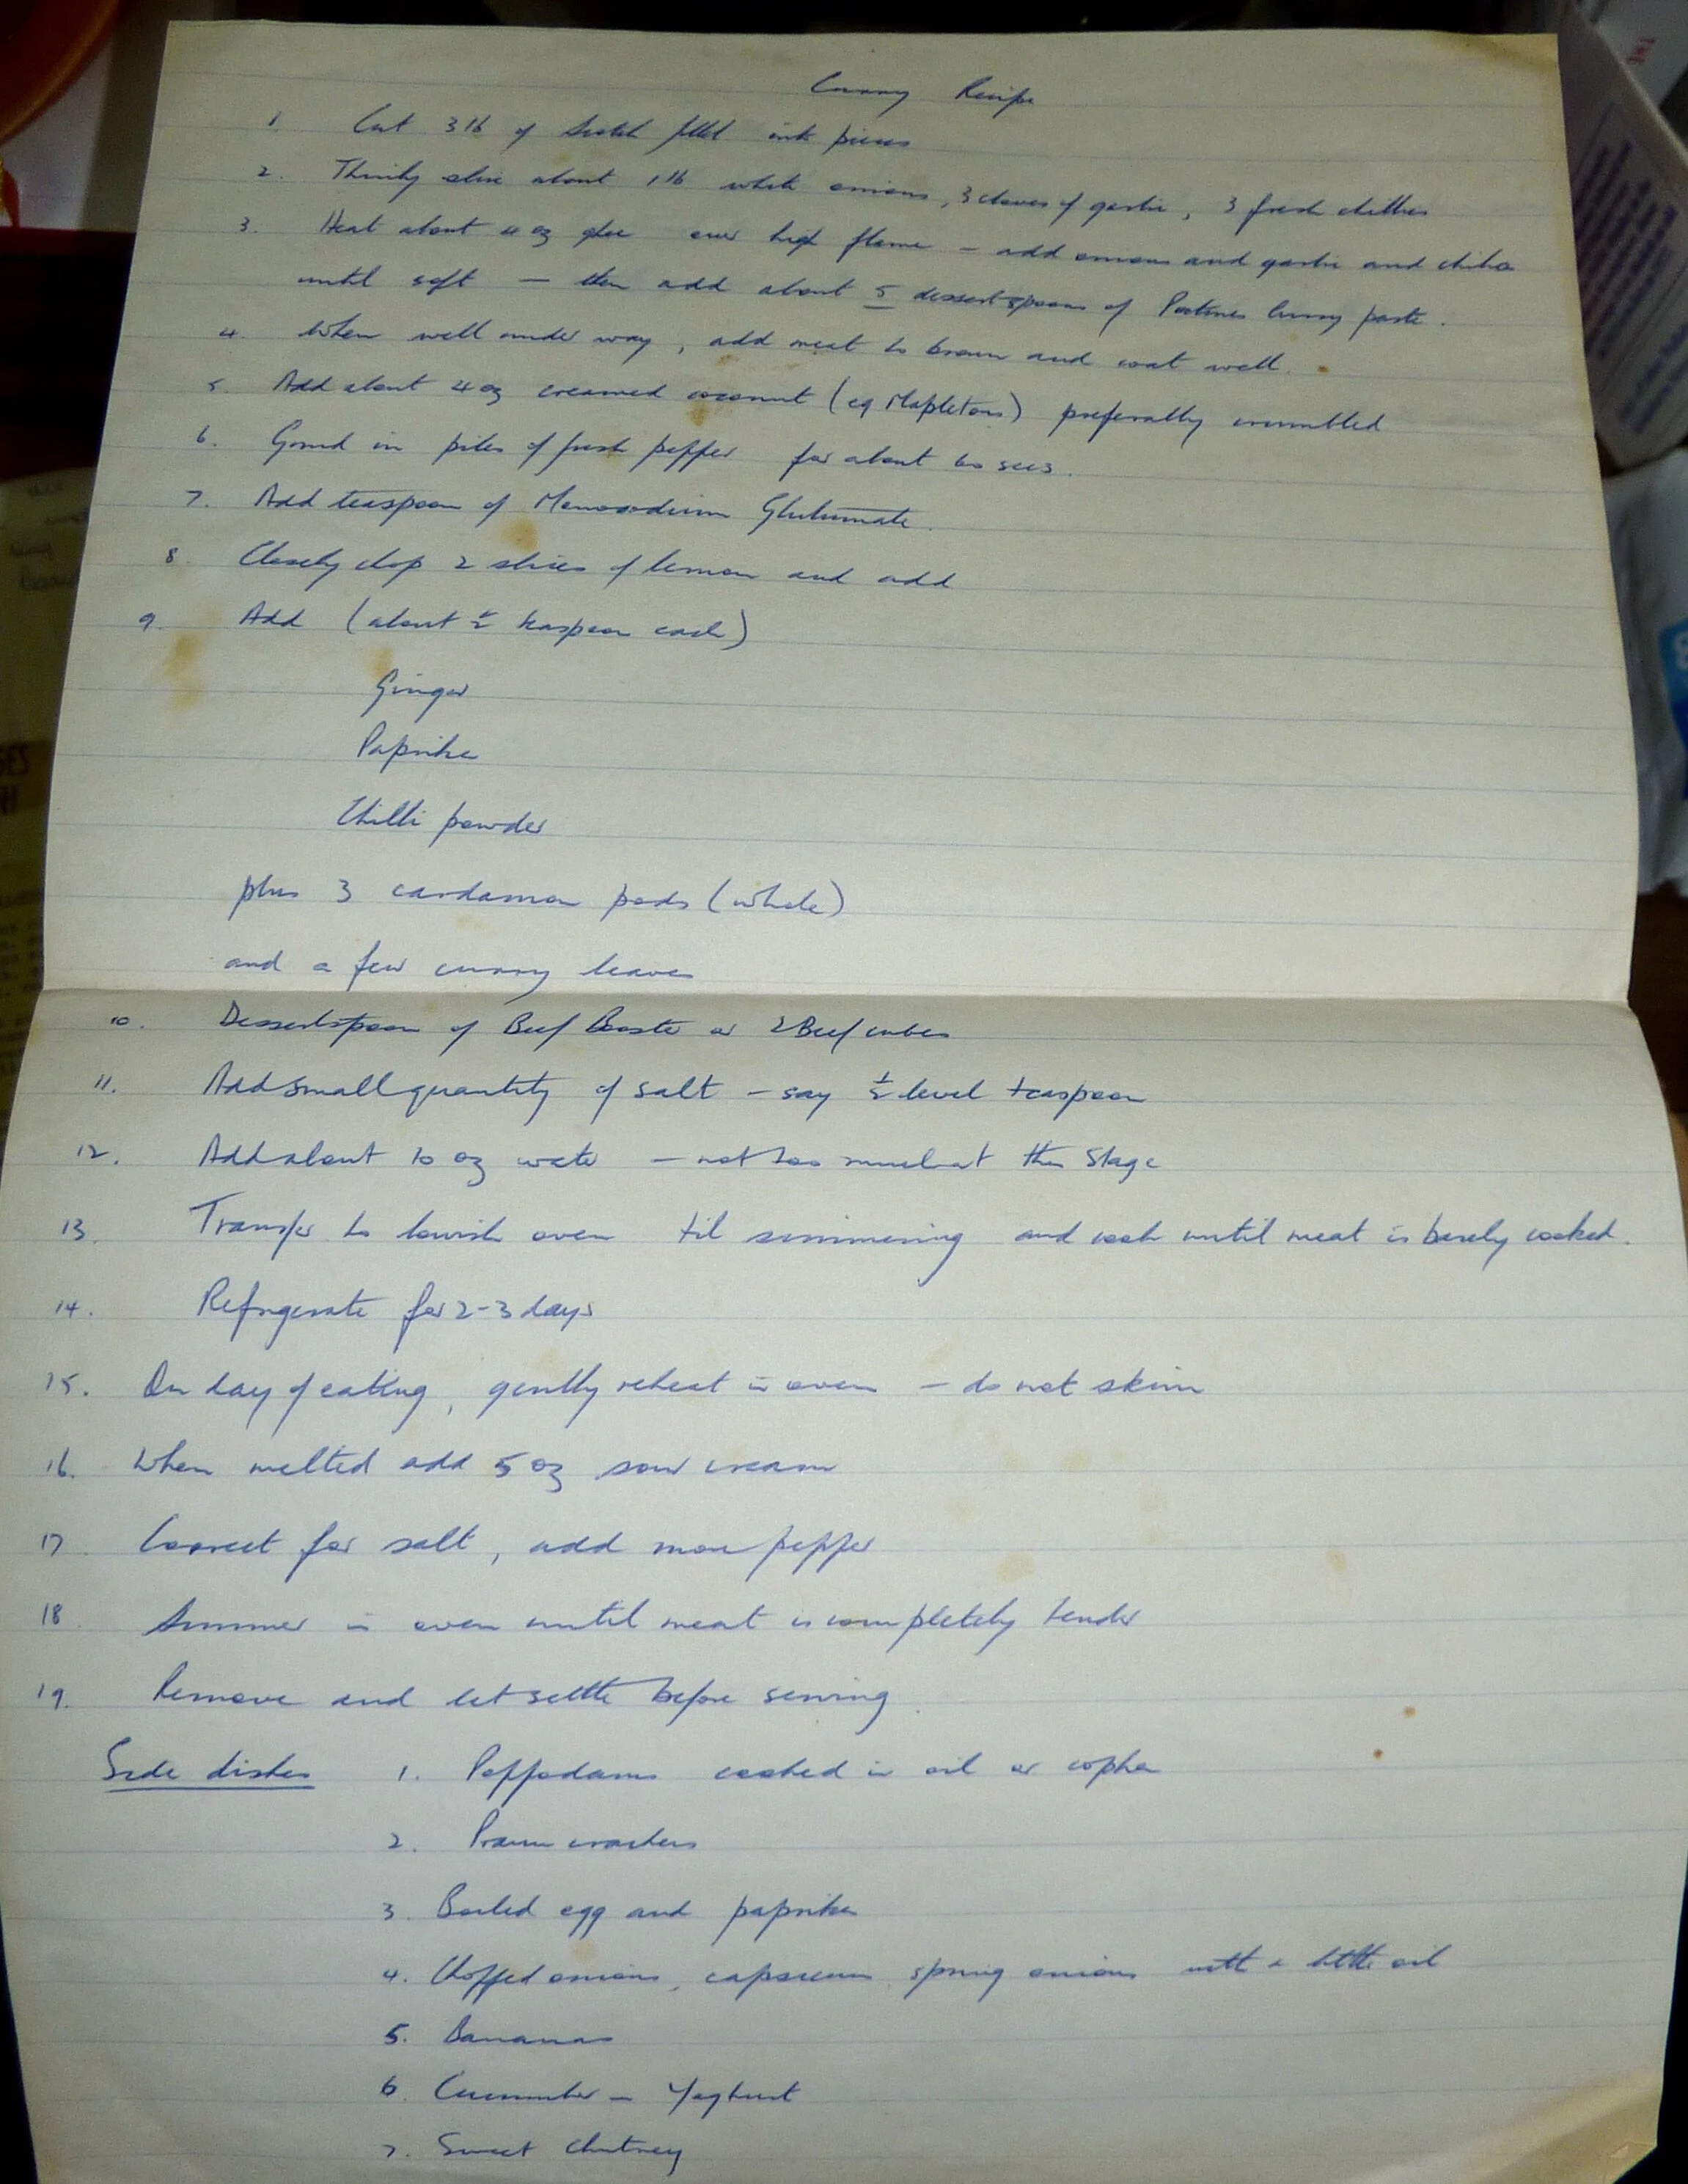 Curry Recipe
1. Cut 3 lb of Scotch fillet into pieces
2. Thinly slice about 1 lb white onions, 3 cloves of garlic, 3 fresh chillies
3. Heat about 4 oz ghee over high flame – add onions and garlic and chilies
until soft – then add about 5 dessertspoons of curry paste.
4. When well under way, add meat to brown and coat well.
5. Add about 4 oz creamed coconut (eg Mapletons) preferably crumbled
6. Grind in piles of fresh pepper for about 60 secs.
7. Add teaspoon of Monosodium Glutumate.
8. Closely chop 2 slices of lemon and add
9. Add (about ½ teaspoon each)
Ginger
Paprika
Chilli powder
plus 3 cardamon pods (whole)
and a few curry leaves
10. Dessertspoon of Beef Booster or 2 Beef cubes
11. Add small quantity of salt – say ½ level teaspoon
12. Add about 10 oz water – not too much at this stage
13. Transfer to lowish oven til simmering and cook until meat is barely cooked.
14. Refrigerate for 2-3 days
15. On day of eating, gently reheat in oven – do not skim
16. When melted add 5 oz sour cream
17. Correct for salt, add more pepper
18. Simmer in oven until meat is completely tender
19. Remove and let settle before serving.
Side dishes 1. Poppodams cooked in oil or copha
2. Prawn crackers
3. Boiled egg and paprika
4. Chopped onions, capsicum, spring onions with a little oil
5. Bananas
6. Cucumber – Yoghurt
7. Sweet Chutney